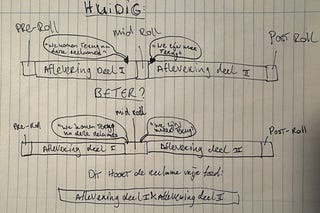 HUIDIG:
PRE-Roll
mid Roll
Post Roll
"We komen Terug na deze reclame"
"We zijn weer Terug"
Aflevering deel I
Aflevering deel II
BETER?
mid roll
Pre-Roll
"We komen Terug na deze reclame
"We zijn weer Terug"
Post-Roll
Aflevering deel I
Aflevering deel II
Dit Hoort de reclame vrije feed:
Aflevering deel I
Aflevering deel II